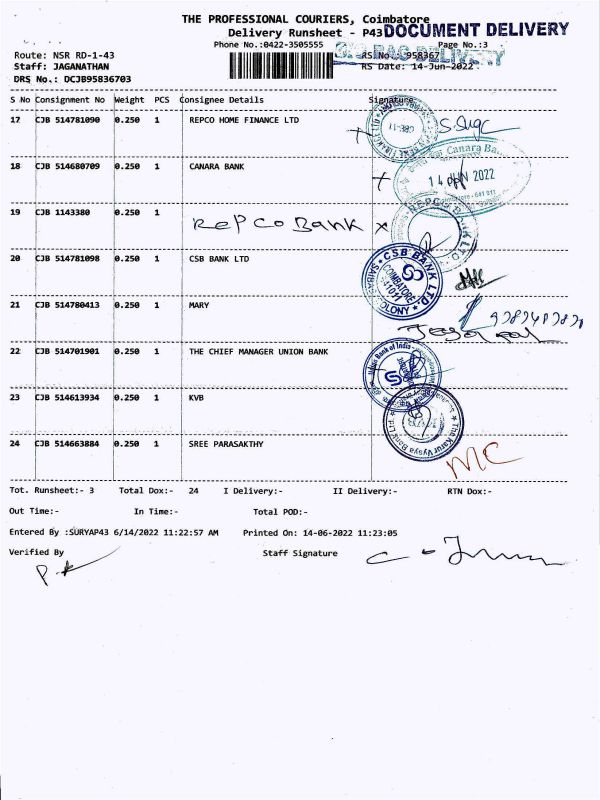 THE PROFESSIONAL COURIERS, Coimbatore
Delivery Runsheet - P43 DOCUMENT DELIVERY
Phone No.:0422-3505555 Page No.:3
Route: NSR RD-1-43 RS No.: 958367
Staff: JAGANATHAN RS Date: 14-Jun-2022
DRS No.: DCJB95836703
S No Consignment No Weight PCS Consignee Details Signature
17 CJB 514781090 0.250 1 REPCO HOME FINANCE LTD
18 CJB 514680709 0.250 1 CANARA BANK
Canara Ba
14 JUN 2022
19 CJB 1143380 0.250 1 RePCO Bank x
REPCO BANK LTD
20 CJB 514781098 0.250 1 CSB BANK LTD
CSB BANK LTD.
COIMBATORE
COLONY
21 CJB 514780413 0.250 1 MARY
22 CJB 514701901 0.250 1 THE CHIEF MANAGER UNION BANK
Union Bank of India
23 CJB 514613934 0.250 1 KVB
The Karur Vysya Bank
24 CJB 514663884 0.250 1 SREE PARASAKTHY
MC
Tot. Runsheet:- 3 Total Dox:- 24 I Delivery:- II Delivery:- RTN Dox:-
Out Time:- In Time:- Total POD:-
Entered By :SURYAP43 6/14/2022 11:22:57 AM Printed On: 14-06-2022 11:23:05
Verified By Staff Signature